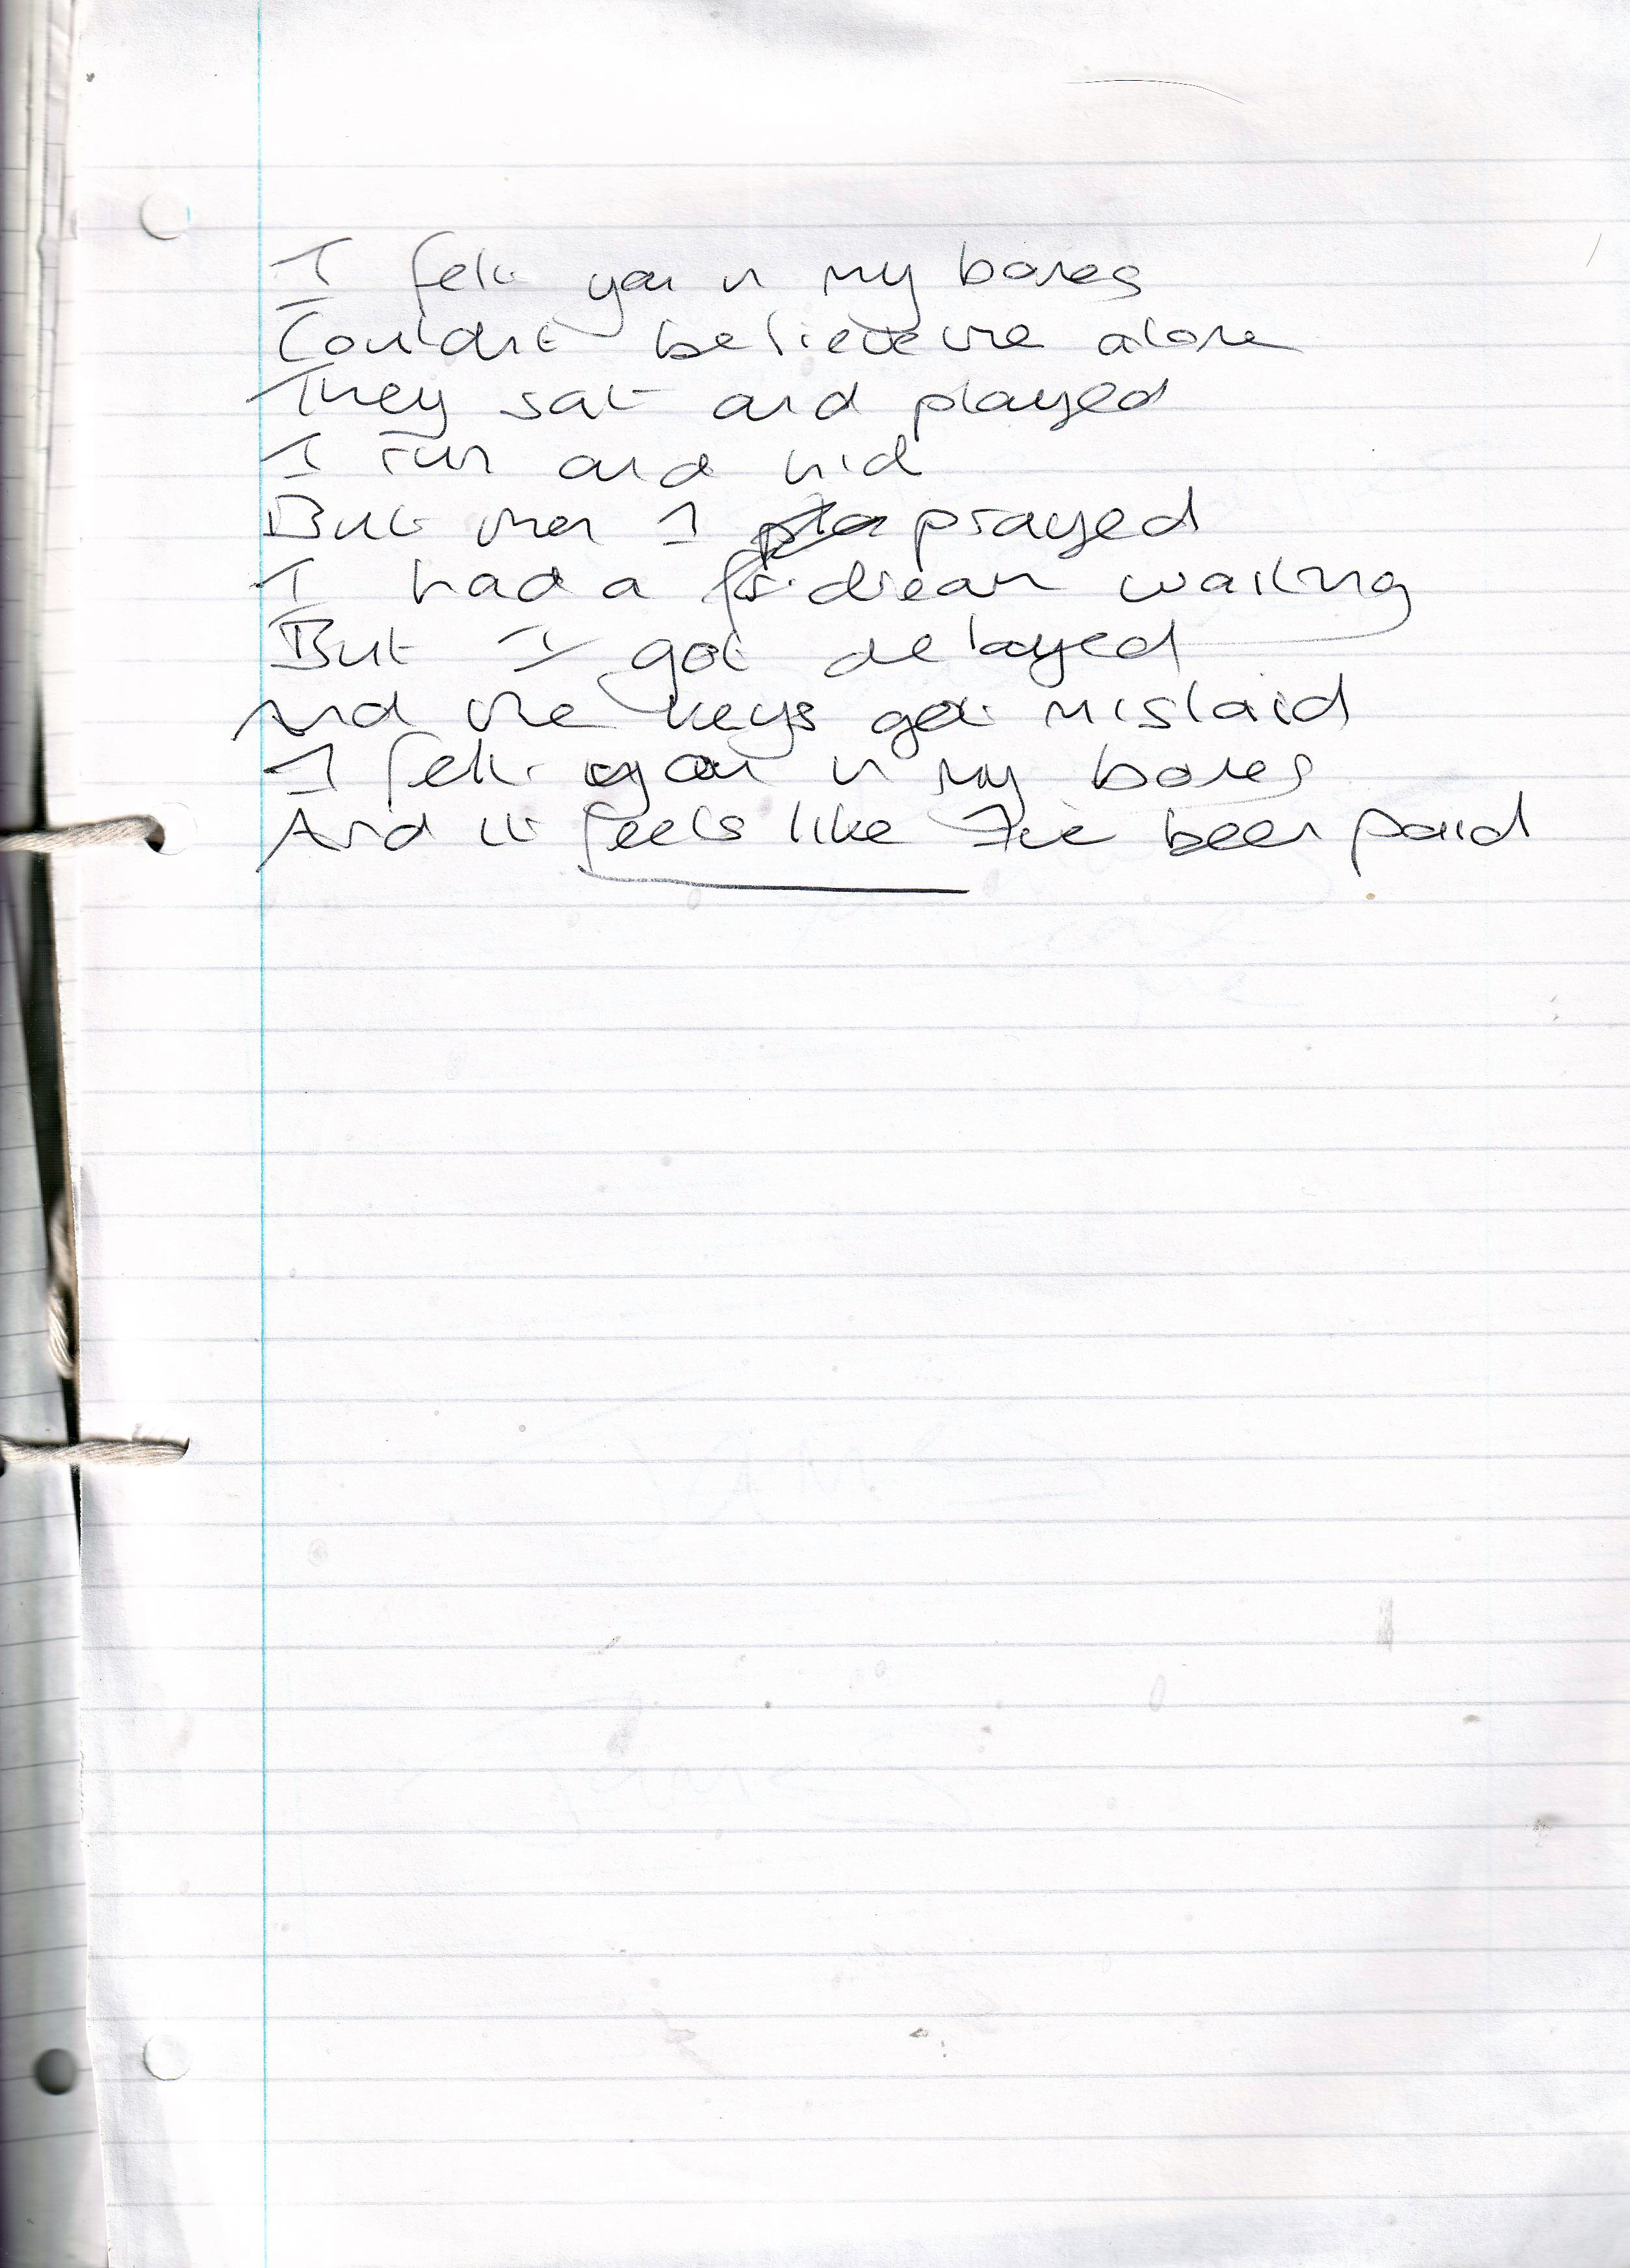 I felt you in my bones
Couldnt believe the alone
They sat and played
I run and hid
But then I prayed
I had a dream waiting
But I got delayed
And the keys got mislaid
I felt you in my bones
And it feels like I've been paid